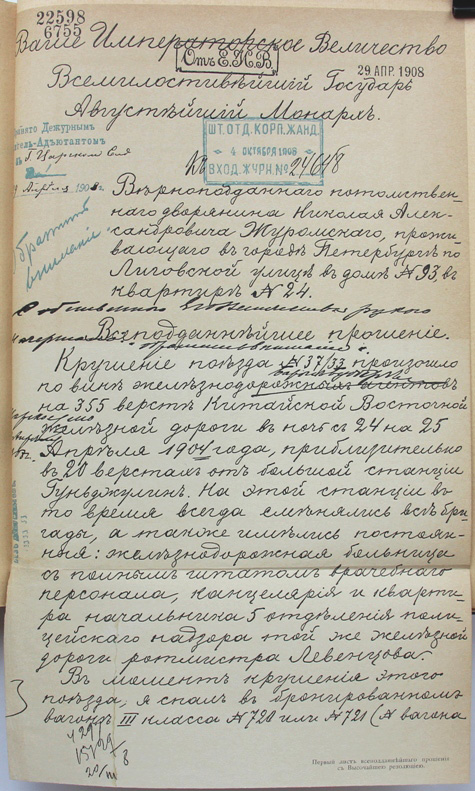 22598
6755
Ваше Императорское Величество
Отъ Е.И.В.
29 АПР. 1908
Всемилостивѣйшій Государь
Августѣйшій Монархъ.
Дежурнымъ
Адъютантомъ
ШТ. ОТД. КОРП. ЖАНД.
4 ОКТЯБРЯ 1908
ВХОД. ЖУРН. №
Вѣрноподданнаго потомствен-
наго дворянина Николая Алек-
сандровича Журомскаго, прожи-
вающаго въ городѣ Петербургѣ по
Лиговской улицѣ въ домѣ № 93, въ
квартирѣ № 24.
обратить
вниманіе
Собственного Его Величества рукою
начертано:
Всеподданнѣйшее прошеніе.
обратить вниманіе
Крушеніе поѣзда № 37/33 произошло
по винѣ желѣзнодорожныхъ агентовъ
на 355 верстѣ Китайской Восточной
желѣзной дороги въ ночь съ 24 на 25
Апрѣля 1904 года, приблизительно
въ 20 верстахъ отъ большой станціи
Гунъджулинъ. На этой станціи въ
то время всегда смѣнялись всѣ бри-
гады, а также имѣлись постоян-
ныя: желѣзнодорожная больница
съ полнымъ штатомъ врачебнаго
персонала, канцелярія и кварти-
ра начальника 5 отдѣленія поли-
цейскаго надзора той же желѣзной
дороги ротмистра Левенцова.
Въ моментъ крушенія этого
поѣзда, я спалъ въ бронированномъ
вагонѣ III класса № 720 или № 721 (№ вагона
Первый листъ всеподданнѣйшаго прошенія
съ Высочайшею резолюціею.